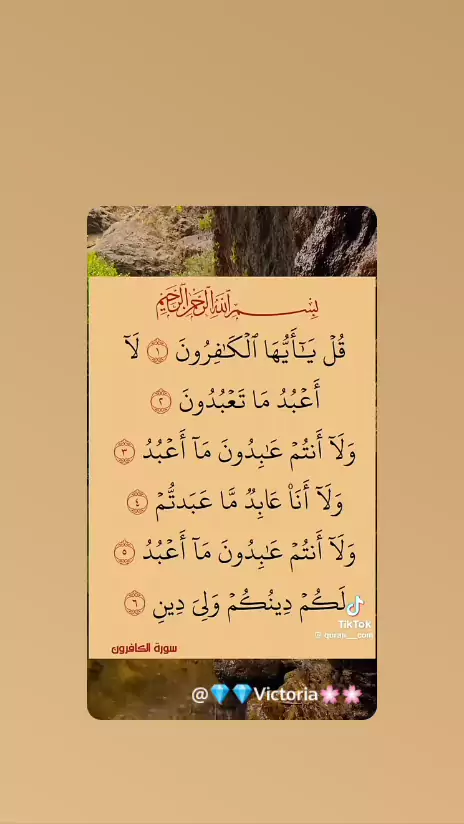 بِسْمِ ٱللَّهِ ٱلرَّحْمَٰنِ ٱلرَّحِيمِ
قُلْ يَـٰٓأَيُّهَا ٱلْكَـٰفِرُونَ ١ لَآ
أَعْبُدُ مَا تَعْبُدُونَ ٢
وَلَآ أَنتُمْ عَـٰبِدُونَ مَآ أَعْبُدُ ٣
وَلَآ أَنَا۠ عَابِدٌ مَّا عَبَدتُّمْ ٤
وَلَآ أَنتُمْ عَـٰبِدُونَ مَآ أَعْبُدُ ٥
لَكُمْ دِينُكُمْ وَلِىَ دِينِ ٦
TikTok
سورة الكافرون
@💎💎Victoria🌸🌸